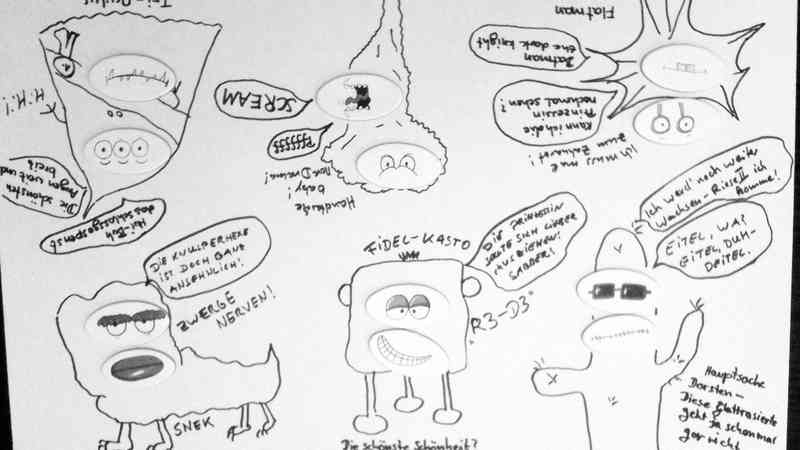 Flatman
Batman
the dark knight
Kann ich die
Prinzessin
nochmal sehen?
Ich muss mal
zum Zahnarzt!
SCREAM
Handtasche
Baby!
Hi-Hi!
Die schönsten
Augen weit und
breit
Hui-Buh
das Schlossgespenst
DIE KNUSPERHEXE
IST DOCH GANZ
ANSEHNLICH!
ZWERGE
NERVEN!
SNEK
FIDEL-KASTO
DIE PRINZESSIN
SOLLTE SICH LIEBER
AUSZIEHEN!
SABBER!
R3-D3
Die schönste Schönheit?
Ich werd' noch weiter
Wachsen - Riese II ich
komme!
EITEL, WAS?
EITEL, DUM-
DEITEL.
Hauptsache
Borsten -
Diese Glattrasierte
geht ja schonmal
gar nicht